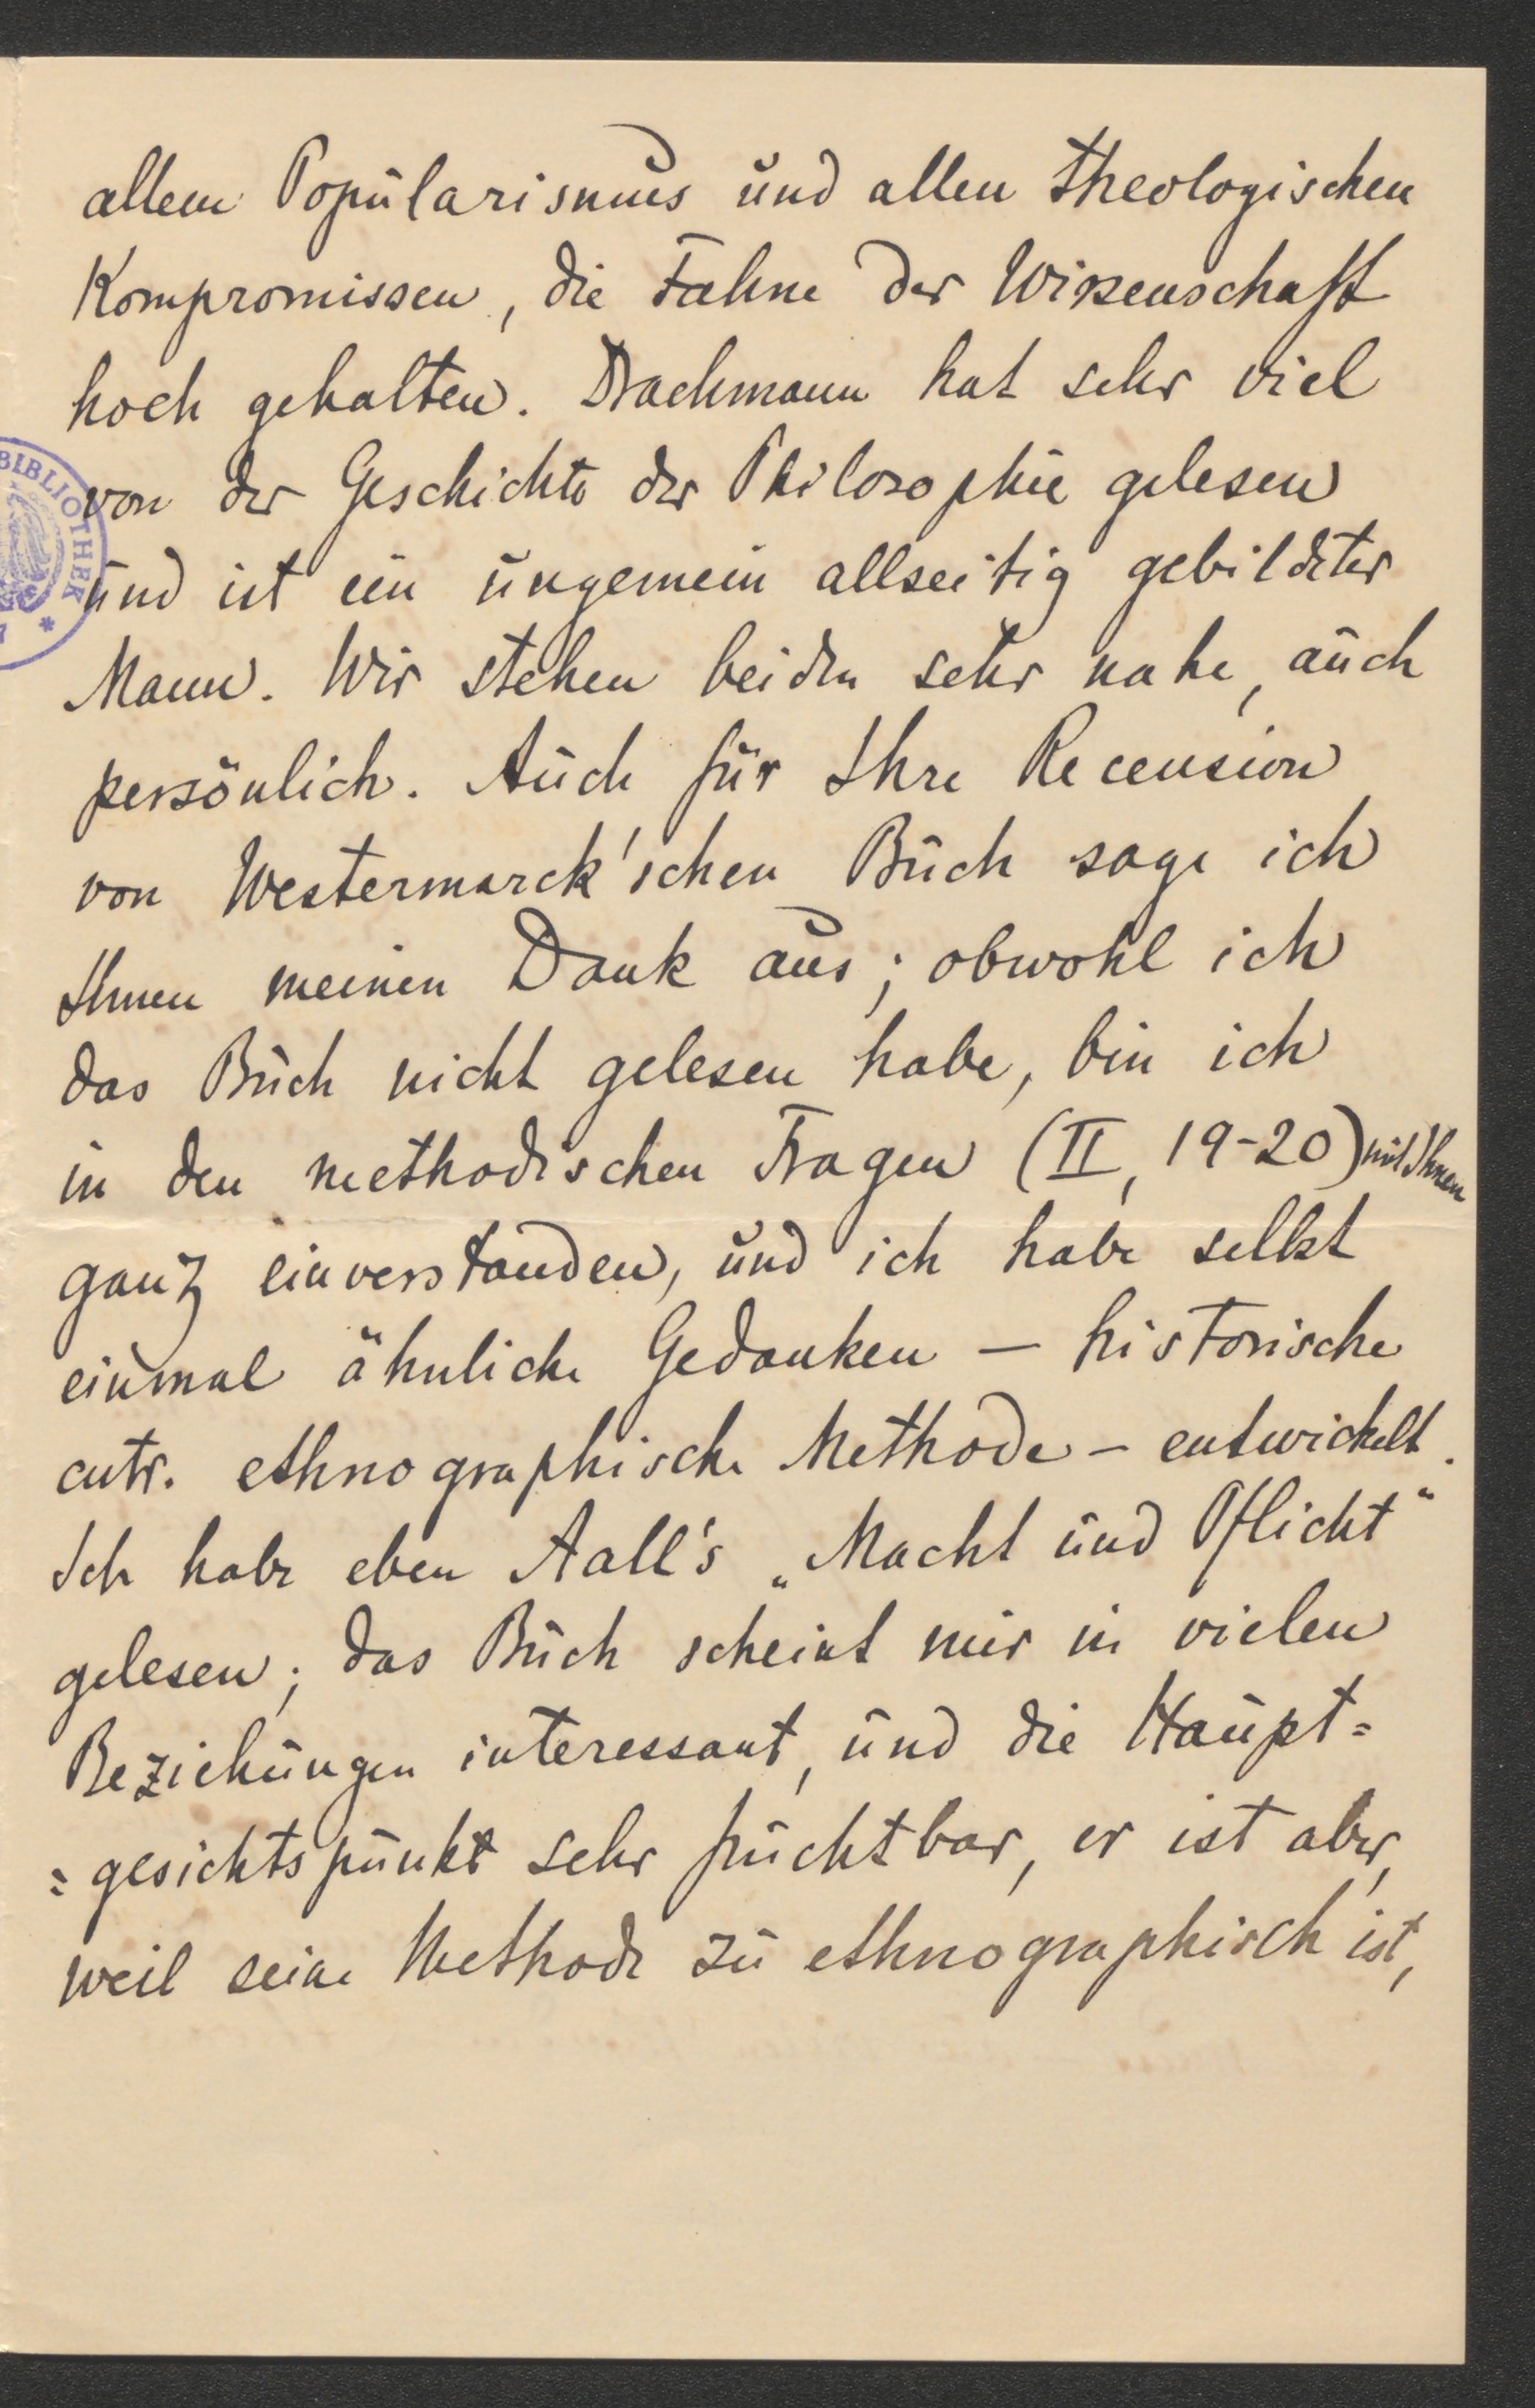 allem Popularismus und allen theologischen
Kompromissen, die Fahne der Wissenschaft
hoch gehalten. Drachmann hat sehr viel
von der Geschichte der Philosophie gelesen
und ist ein ungemein allseitig gebildeter
Mann. Wir stehen beiden sehr nahe, auch
persönlich. Auch für Ihre Recension
von Westermarck'schen Buch sage ich
Ihnen meinen Dank aus; obwohl ich
das Buch nicht gelesen habe, bin ich
in den methodischen Fragen (II, 19-20) mit Ihnen
ganz einverstanden, und ich habe selbst
einmal ähnliche Gedanken – historische
cntr. ethnographische Methode – entwickelt.
Ich habe eben Aall's „Macht und Pflicht“
gelesen; das Buch scheint mir in vielen
Beziehungen interessant, und die Haupt=
=gesichtspunkt sehr fruchtbar, er ist aber,
weil seine Methode zu ethnographisch ist,
BIBLIOTHEK